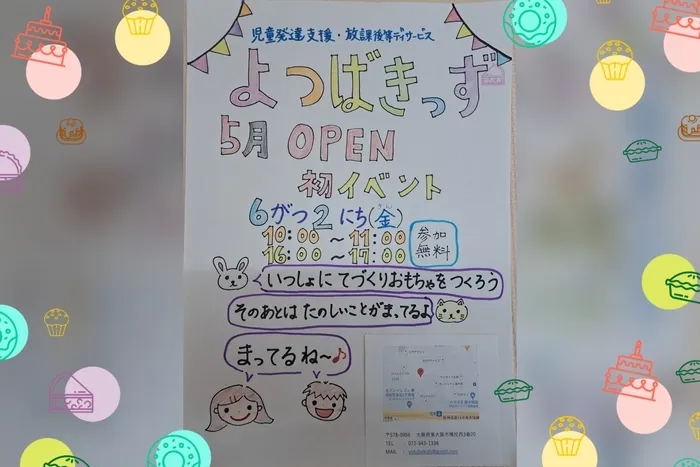 児童発達支援・放課後等デイサービス
よつばきっず
5月 OPEN
初イベント
6がつ2にち(金)
10:00 ~ 11:00
16:00 ~ 17:00
参加
無料
いっしょに てづくりおもちゃをつくろう
そのあとは たのしいことがまってるよ
まってるね~♪
TEL
MAIL